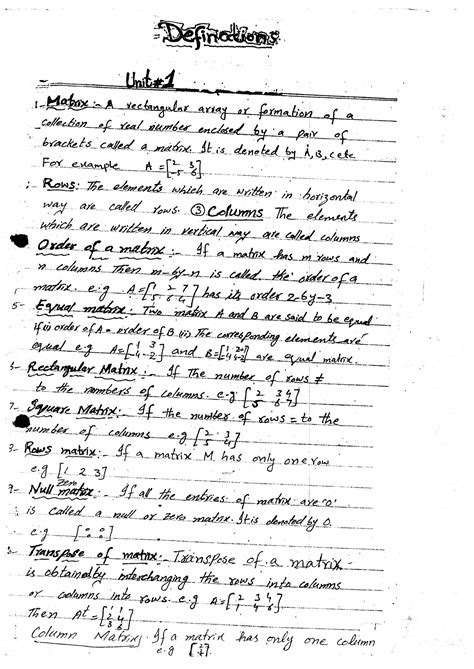 Definations
Unit#1
1- Matrix:- A rectangular array or formation of a
collection of real number enclosed by a pair of
brackets called a matrix. It is denoted by A, B, C etc
For example A = [2 3 -5 6]
Rows: The elements which are written in horizontal
way are called rows. ③ Columns The elements
which are written in vertical way are called columns
Order of a matrix:- If a matrix has m rows and
n columns Then m-by-n is called the order of a
matrix. e.g A= has its order 2-by-3
5- Equal matrix: Two matrix A and B are said to be equal
if (i) order of A = order of B (ii) The corresponding elements are
equal e.g A=[1 3 4 -2] and B= are equal matrix
Rectangular Matrix:- If The number of rows ≠
to the numbers of columns. e.g
7- Square Matrix: If the number of rows = to the
number of columns e.g
Rows matrix:- If a matrix M has only one row
e.g. [1 2 3]
Zero
9- Null matrix:- If all the entries of matrix are '0'
is called a null or zero matrix. It is denoted by O.
e.g [0 0 0 0]
Transpose of matrix:- Transpose of a matrix
is obtained by interchanging the rows into columns
or columns into rows. e.g A=
Then At =
Column Matrix: If a matrix has only one column
e.g